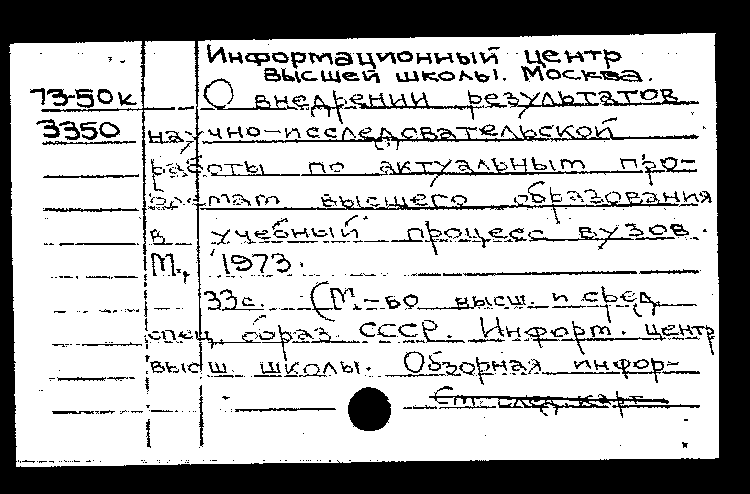 Информационный центр
высшей школы. Москва.
73-50к О внедрении результатов
3350 научно-исследовательской
работы по актуальным про-
блемам высшего образования
в учебный процесс вузов.
М., 1973.
33с. (М-во высш. и сред.
спец. образ. СССР. Информ. центр
высш. школы. Обзорная инфор-
См. след. карт